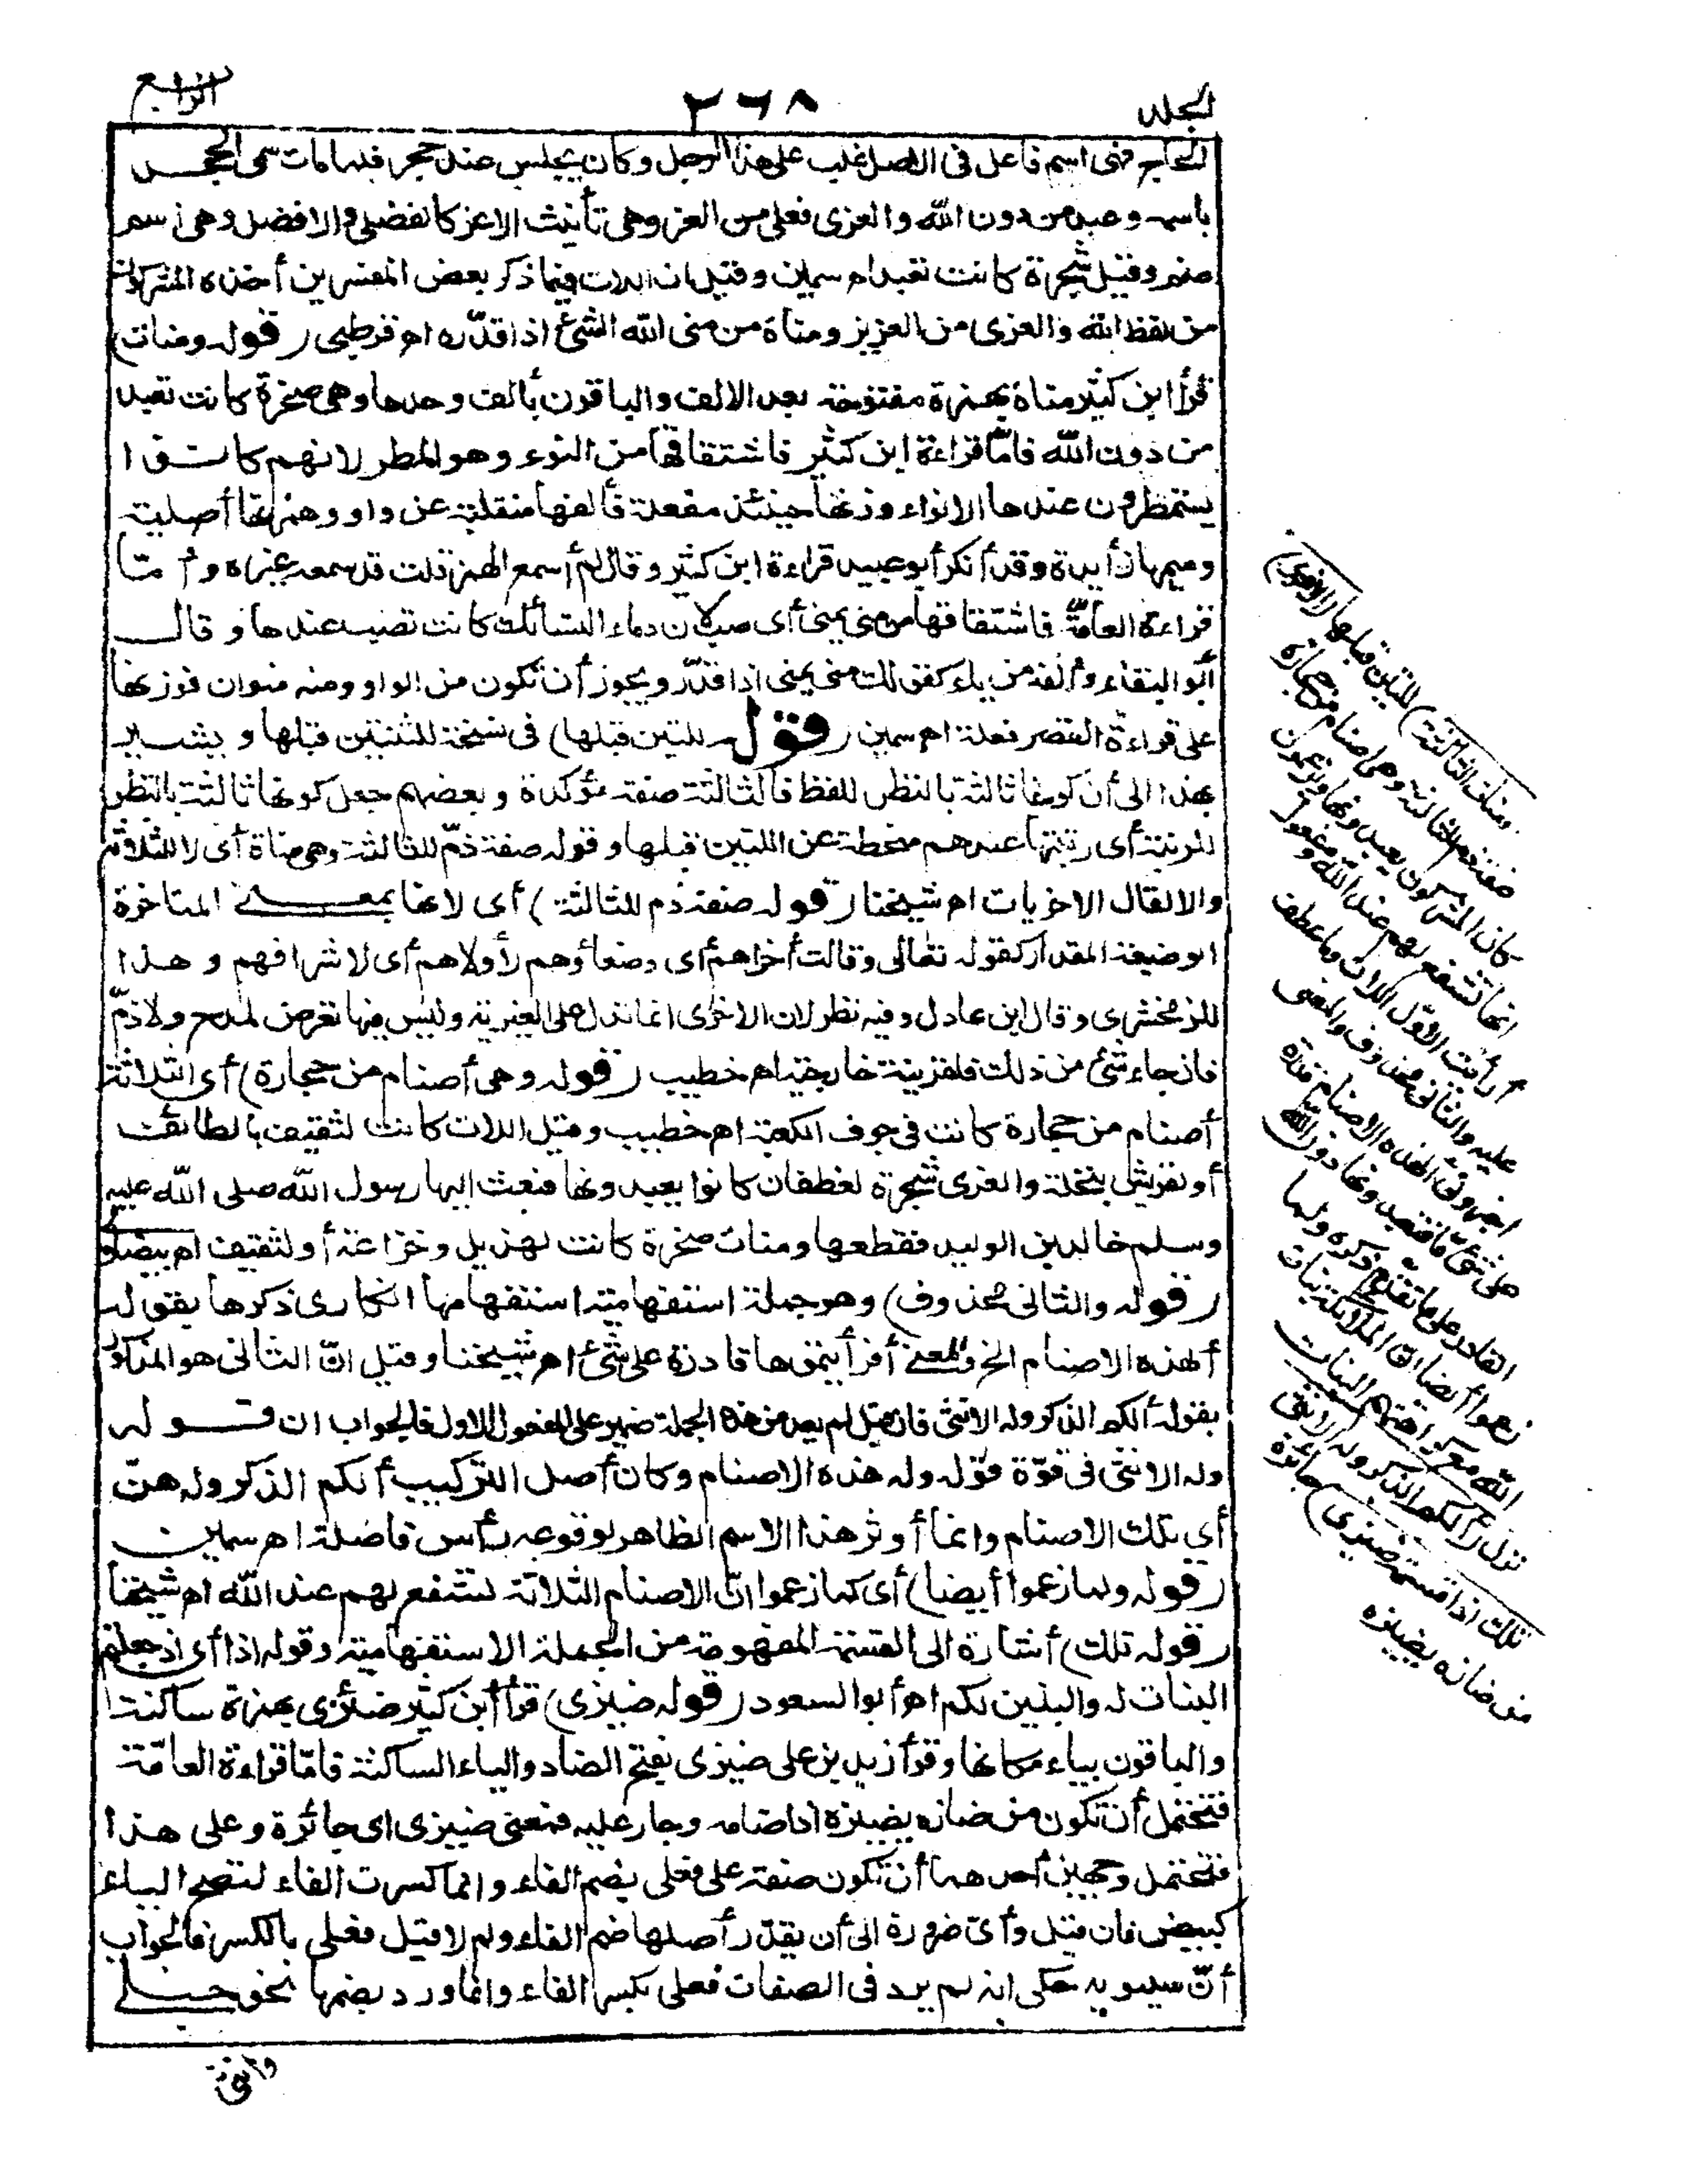 المجلد
٢٦٨
الرابع
للحاج فهي اسم فاعل في الاصل غلب على هذا الرجل وكان يجلس عند حجر فلما مات سمى الحجر
باسمه وعبد من دون الله والعزى فعلى من العز وهي تأنيث الاعز كالفضلى والافضل وهي اسم
صنم وقيل شجرة كانت تعبد اهـ سمين وقيل ان اللات فيما ذكر بعض المفسرين أخذه المشركون
من لفظ الله والعزى من العزيز ومناة من منى الله الشئ اذا قدّره اهـ قرطبى (قوله ومنات)
قرأ ابن كثير مناءة بهمزة مفتوحة بعد الالف والباقون بألف وحدها وهي صخرة كانت تعبد
من دون الله فامّا قراءة ابن كثير فاشتقاقها من النوء وهو المطر لانهم كانوا
يستمطرون عندها الانواء وزنها حينئذ مفعلة فألفها منقلبة عن واو وهمزتها أصلية
وميمها زائدة وقد أنكر أبو عبيد قراءة ابن كثير وقال لم أسمع الهمز قلت قد سمعه غيره وأمّا
قراءة العامّة فاشتقاقها من منى يمنى أى صب لان دماء النسائك كانت تصب عندها وقال
أبو البقاء وألفه من ياء كقولك منى يمنى اذا قدّر ويجوز أن تكون من الواو ومنه منوان فوزنها
على قراءة القصر فعلة اهـ سمين (قوله للتين قبلها) في نسخة للثنتين قبلها ويشير
بهذا الى أن كونها ثالثة بالنظر للفظ فالثالثة صفة مؤكدة وبعضهم جعل كونها ثالثة بالنظر
للرتبة أى رتبتها عندهم منحطة عن اللتين قبلها وقوله صفة ذمّ للثالثة وهي مناة أى لا للثلاثة
والا لقال الاخريات اهـ شيخنا (قوله صفة ذم للثالثة) أى لانها بمعنى المتاخرة
الوضيعة المقدار كقوله تعالى وقالت أخراهم أى وضعاؤهم لأولاهم أى لاشرافهم وهذا
للزمخشرى وقال ابن عادل وفيه نظر لان الاخرى انما تدل على الغيرية وليس فيها تعرض لمدح ولا ذمّ
فان جاء شئ من ذلك فلقرينة خارجية اهـ خطيب (قوله وهي أصنام من حجارة) أى الثلاثة
أصنام من حجارة كانت في جوف الكعبة اهـ خطيب وقيل اللات كانت لثقيف بالطائف
أو لقريش بنخلة والعزى شجرة لغطفان كانوا يعبدونها فبعث اليها رسول الله صلى الله عليه
وسلم خالد بن الوليد فقطعها ومنات صخرة كانت لهذيل وخزاعة أو لثقيف اهـ بيضاوى
(قوله والثانى محذوف) وهو جملة استفهامية استفهامها انكارى ذكرها بقوله
ألهذه الاصنام الخ والمعنى أفرأيتموها قادرة على شئ اهـ شيخنا وقيل انّ الثانى هو المذكور
بقوله ألكم الذكر وله الانثى فان قيل لم يعد من هذه الجملة ضمير على المفعول الاول فالجواب ان قوله
وله الانثى في قوّة قوله وله هذه الاصنام وكان أصل التركيب ألكم الذكر وله هنّ
أى تلك الاصنام وانما أوثر هذا الاسم الظاهر لوقوعه رأس فاصلة اهـ سمين
(قوله ولما زعموا أيضا) أى كما زعموا انّ الاصنام الثلاثة تشفع لهم عند الله اهـ شيخنا
(قوله تلك) أشارة الى القسمة المفهومة من الجملة الاستفهامية وقوله اذا أى اذ جعلتم
البنات له والبنين لكم اهـ أبو السعود (قوله ضيزى) قرأ ابن كثير ضئزى بهمزة ساكنة
والباقون بياء مكانها وقرأ زيد بن على ضيزى بفتح الضاد والياء الساكنة فامّا قراءة العامّة
فتحتمل أن تكون من ضازه يضيزه اذا ضامه وجار عليه فمعنى ضيزى اى جائرة وعلى هذا
فتحتمل وجهين أحدهما أن تكون صفة على فعلى بضم الفاء وانما كسرت الفاء لتصح الياء
كبيض فان قيل وأىّ ضرورة الى أن يقدّر أصلها ضم الفاء ولم لا قيل فعلى بالكسر فالجواب
أنّ سيبويه حكى انه لم يرد فى الصفات فعلى بكسر الفاء وانما ورد بضمها نحو حبلى
ومناة الثالثة) للتين قبلها (الاخرى)
صفة ذم للثالثة وهي اصنام من حجارة
كان المشركون يعبدونها ويزعمون
انها تشفع لهم عند الله ومفعول
أرأيت الاوّل اللات وما عطف
عليه والثانى محذوف والمعنى
اخبرونى ألهذه الاصنام قدرة
على شئ مّا فتعبدونها دون الله
القادر على ما تقدّم ذكره ولما
زعموا أيضا انّ الملائكة بنات
الله مع كراهتهم البنات
نزل (ألكم الذكر وله الانثى
تلك اذا قسمة ضيزى) جائرة
من ضازه يضيزه